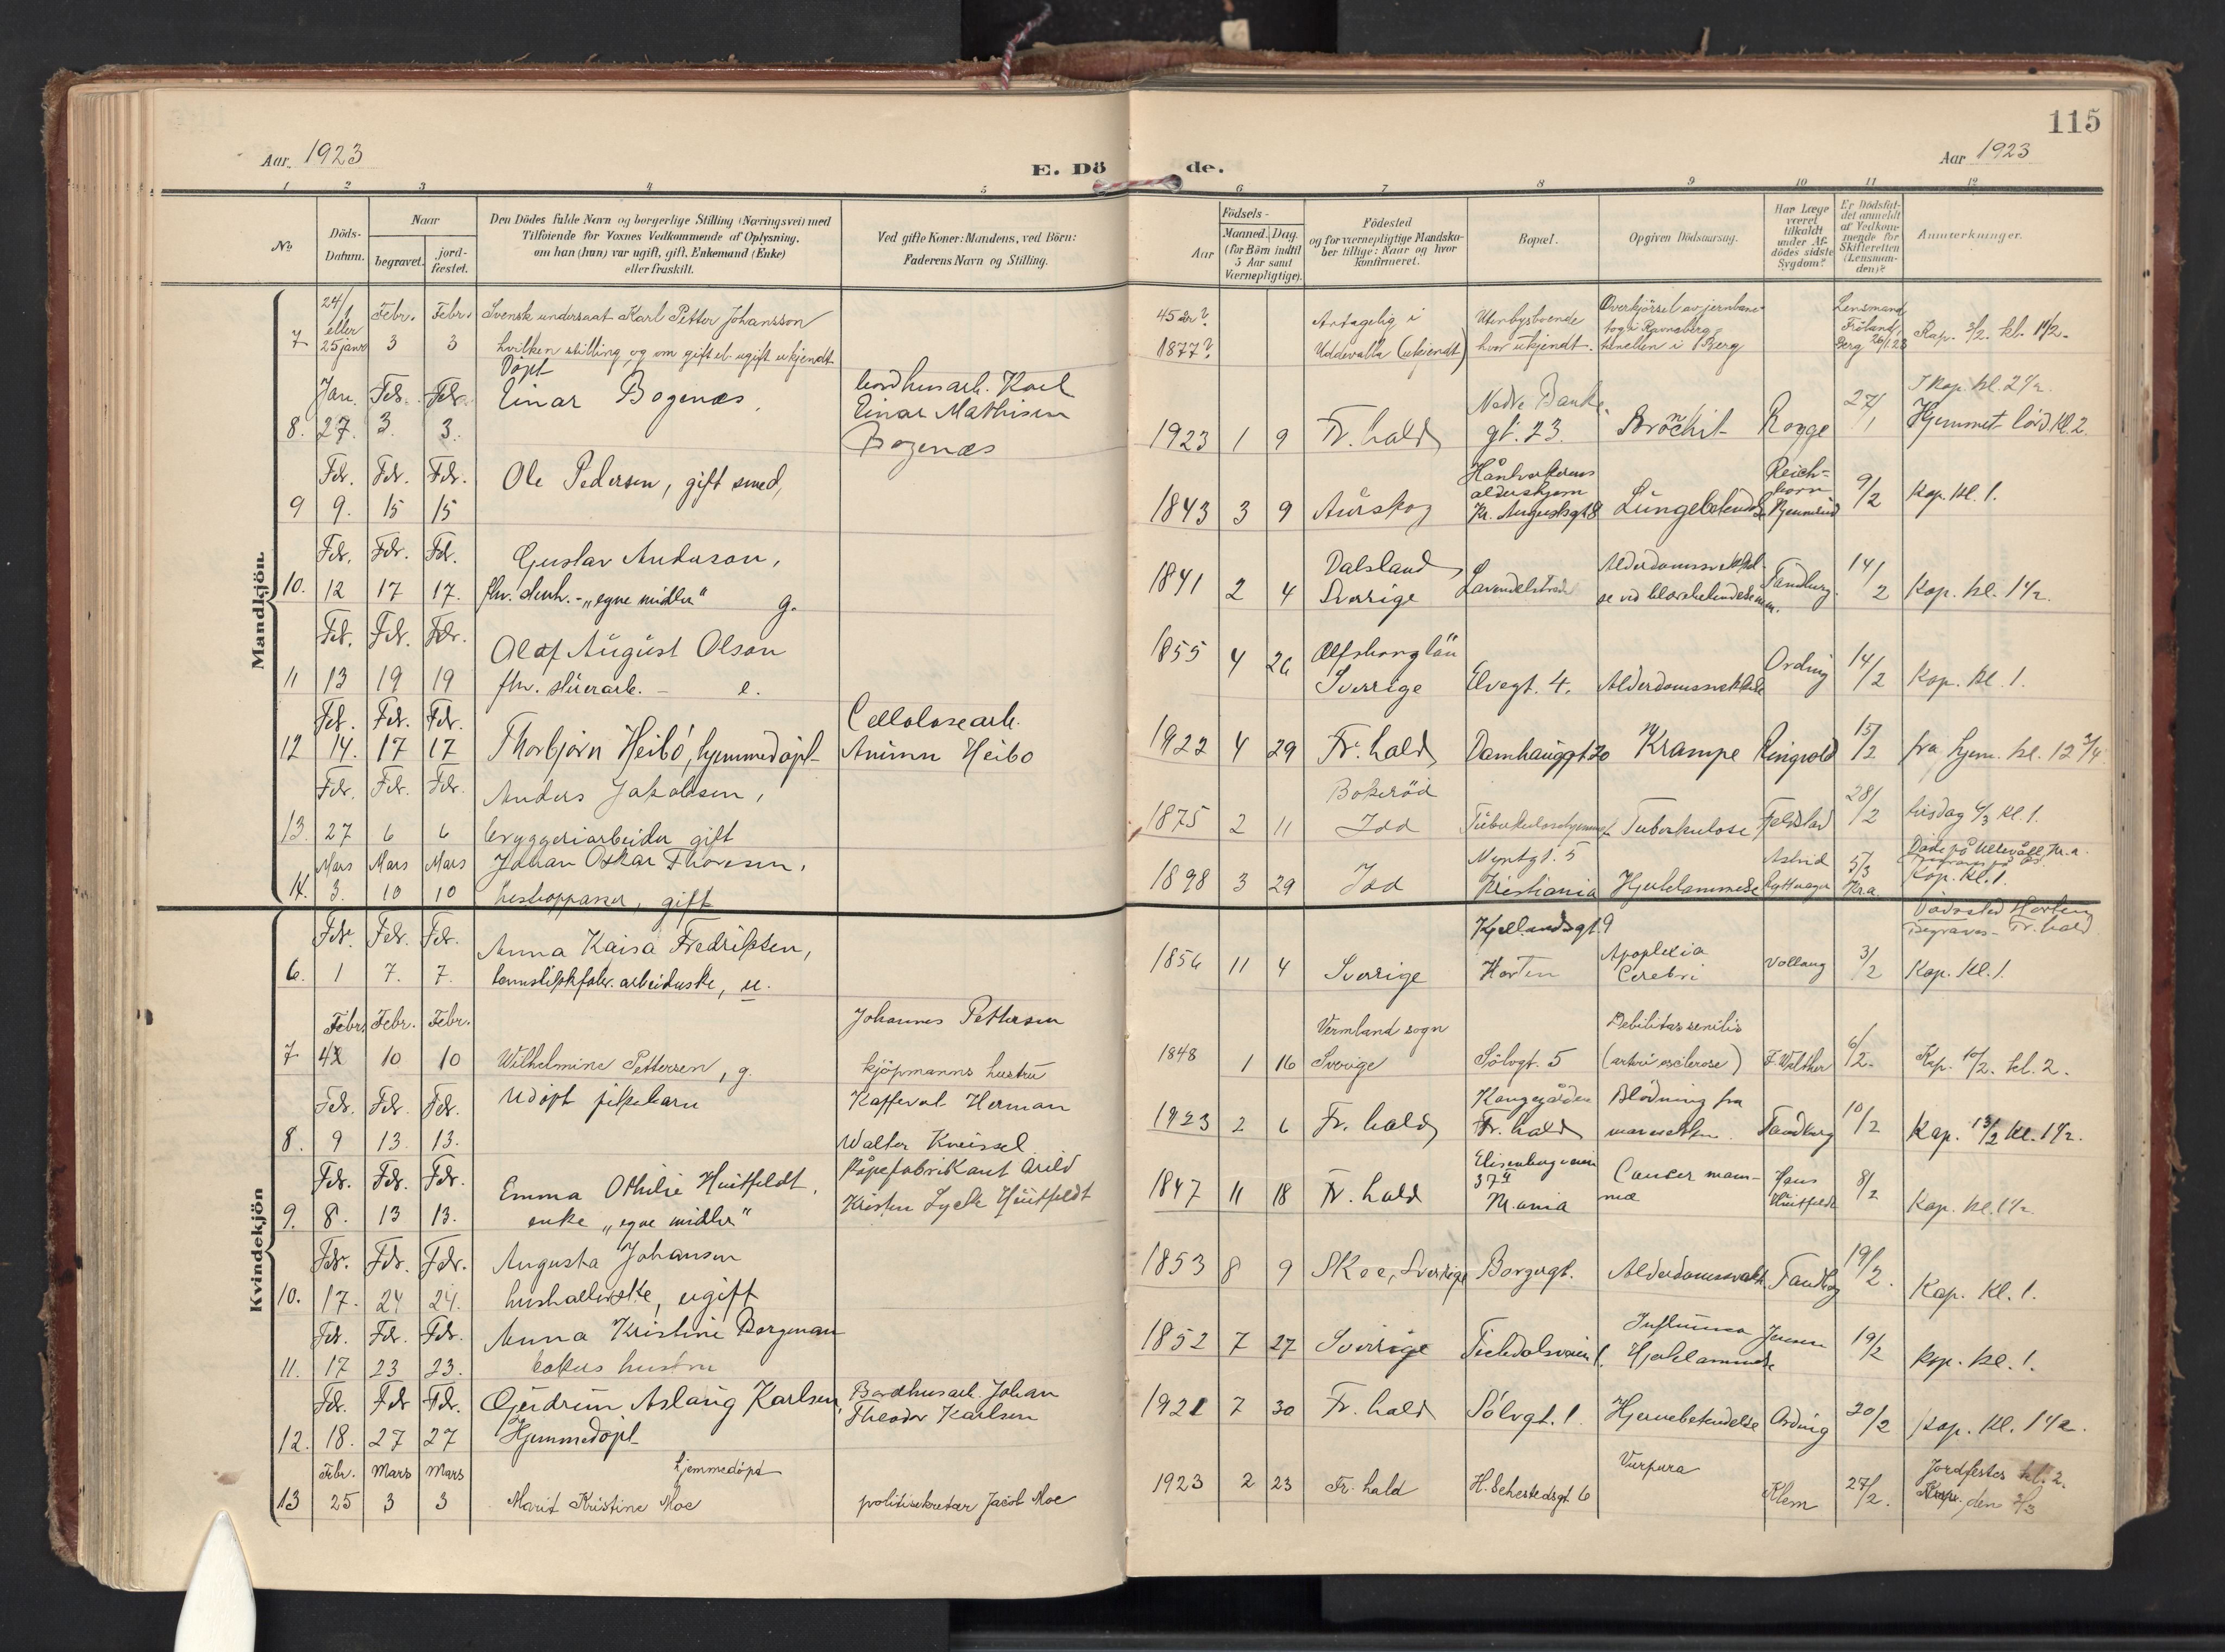 115
Aar. 1923
E. Dö de.
Aar 1923
1 2 3 4 5 6 7 8 9 10 11 12
No
Döds-Datum.
Naar
begravet.
jord-fæstet.
Den Dödes fulde Navn og borgerlige Stilling (Næringsvei) med
Tilföiende for Voxnes Vedkommende af Oplysning,
om han (hun) var ugift, gift, Enkemand (Enke)
eller fraskilt.
Ved gifte Koner: Mandens, ved Börn:
Faderens Navn og Stilling.
Födsels-
Aar
Maaned. Dag.
(for Börn indtil
5 Aar samt
Værnepligtige).
Födested
og for værnepligtige Mandska-
ber tillige: Naar og hvor
konfirmeret.
Bopæl.
Opgiven Dödsaarsag.
Har Læge
været
tilkaldt
under Af-
dödes sidste
Sygdom?
Er Dödsfal-
det anmeldt
af Vedkom-
mende for
Skifteretten
(Lensman-
den)?
Anmærkninger.
Mandkjön.
24/1 Febr. Febr. Svensk undersaat Karl Petter Johansson 45 år? Antagelig i Utenbysboende Overkjörsel av jernbane- Lensmand
7 eller 25 janr 3 3 hvilken stilling og om gift el. ugift ukjendt 1877? Uddevalla (ukjendt) hvor ukjendt. tog i tunellen i Berg Fröland Berg 26/1.23 Kap. 3/2. kl. 1 1/2.
Döpt
Jan. Feb. Feb. Einar Bogenæs, Karl Nedre Banke I Kap. kl. 2 1/2.
8. 27. 3. 3. Einar Mathisen Bogenæs 1923 1 9 Fr.hald gt. 23. Bronchit Rogge 27/1 Hjemmet lörd. kl. 2
Feb. Feb. Feb. Ole Pedersen, gift smed, Håndverkernes aldershjem Reich-
9 9. 15 15 1843 3 9 Aurskog Kr. Augustsgt 8 Lungebetændelse 9/2 Kap. Kl. 1.
Feb. Feb. Feb. Gustav Anderson, Dalsland Alderdomssvakkel-
10. 12 17 17. fhv. "egne midler" g. 1841 2 4 Sverige se ved Tandberg. 14/2 Kap. kl. 1 1/2.
Feb. Feb. Feb. Olaf August Olson 1855 4 26 Elfsborglän
11 13 19 19 fhv. e. Sverige Elvegt. 4. Alderdomssvakkelse Ording 14/2 Kap. Kl. 1.
Feb. Feb. Feb. Cellolosearb.
12 14. 17 17 Thorbjörn Heibö, hjemmedöpt Heibö 1922 4 29 Fr.hald Damhauggt 20 Krampe Ringvold 15/2 fra hjem. kl. 12 3/4
Feb. Feb. Feb. Anders Jakobsen, Bokeröd
13. 27 6 6 bryggeriarbeider gift 1875 2 11 Idd Tuberkulosehjemmet Tuberkulose Fjeldstad 28/2 tirsdag 6/3 kl. 1.
Mars Mars Mars Johan Oskar Thoresen, Myntgt. 5 Astrid Döde på Ullevål Kr.a.
14. 3. 10 10 hestepasser, gift 1898 3 29 Idd Kristiania Hjertelammelse 5/3 Kr.a Kap. kl. 1.
Kvindekjön
Feb. Feb. Feb. Anna Kaisa Fredriksen, Kjellandsgt. 9 Apoplexia Dödssted Horten Begraves Fr.hald
6. 1 7. 7. arbeiderske, u. 1856 11 4 Sverige Horten Cerebri Vollaug 3/2 Kap. Kl. 1.
Febr. Febr. Febr. Johannes Pettersen Vermland sogn Debilitas senilis
7 4 10 10 Wilhelmine Pettersen, g. kjöpmanns hustru 1848 1 16 Sverige Sölvgt. 5 F. Walther 6/2. Kap. 10/2. kl. 2.
Feb. Feb. Feb. Udöpt pikebarn Herman Kongegården Blödning fra
8. 9 13 13. Walter Kneissel 1923 2 6 Fr. hald Fr. hald Tandberg 10/2 Kap. 13/2 kl. 1 1/2.
Feb. Feb. Feb. Emma Othilie Huitfeldt, såpefabrikant Arild Elisenbergveien Cancer mam- Hans
9. 8. 13 13. enke, "egne midler" Kristen Lycke Huitfeldt 1847 11 18 Fr. hald 37 II Kr.ania mæ Huitfeldt 8/2 Kap. kl. 1 1/2.
Feb. Feb. Feb. Augusta Johansen
10. 17. 24 24. husholderske, ugift 1853 8 9 Skee, Sverige Borgergt. Alderdomssvakk. Tandberg 19/2. Kap. Kl. 1.
Feb. Feb. Feb. Anna Kristine Borgman Influensa Jensen
11. 17 23 23. bakers hustru 1852 7 27 Sverige Tistedalsveien 1. Hjertelammelse 19/2 Kap. Kl. 1.
Feb. Feb Feb. Gudrun Aslaug Karlsen, Bordhusarb. Johan
12. 18. 27 27 Hjemmedöpt Theodor Karlsen 1921 7 30 Fr. hald Sölvgt. 1. Hjernebetendelse Ording 20/2 Kap. Kl. 1 1/2.
Febr. Mars Mars hjemmedöpt Purpura Jordfestes kl. 2.
13 25 3 3 Marit Kristine Moe politisekretær Jacob Moe 1923 2 23 Fr. hald H. Sehestedsgt. 6 Klem 27/2. Kap. den 3/3